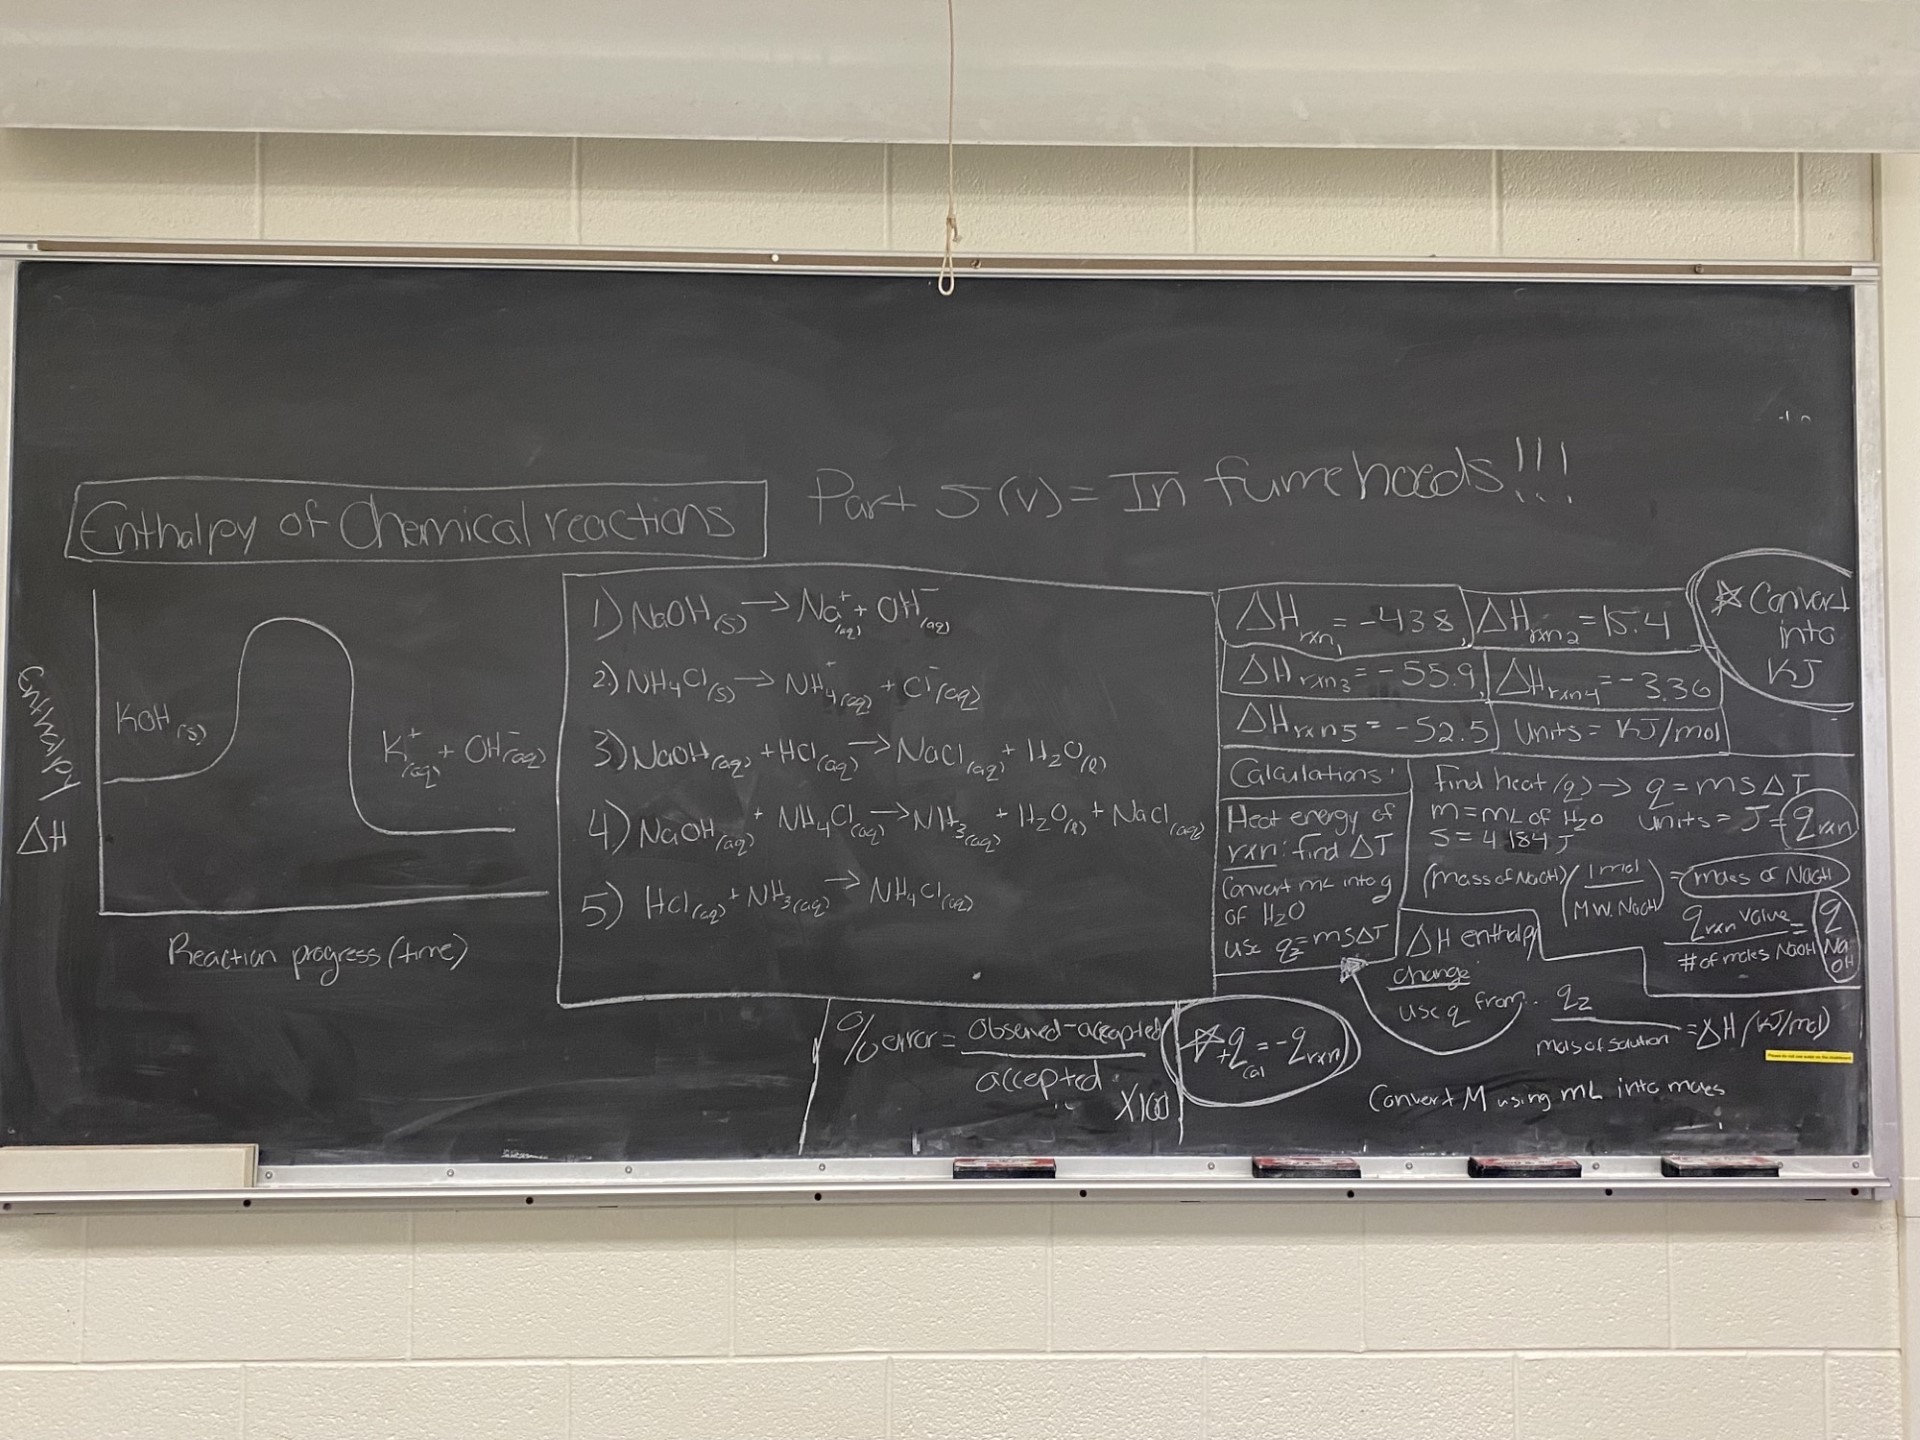 Enthalpy of Chemical reactions
Part 5 (V) = In fume hoods!!!
Enthalpy
ΔH
KOH(s)
K⁺(aq) + OH⁻(aq)
Reaction progress (time)
1) NaOH(s) → Na⁺(aq) + OH⁻(aq)
2.) NH₄Cl(s) → NH₄⁺(aq) + Cl⁻(aq)
3) NaOH(aq) + HCl(aq) → NaCl(aq) + H₂O(l)
4) NaOH(aq) + NH₄Cl(aq) → NH₃(aq) + H₂O(l) + NaCl(aq)
5) HCl(aq) + NH₃(aq) → NH₄Cl(aq)
ΔHrxn₁ = -43.8, ΔHrxn₂ = 15.4
ΔHrxn₃ = -55.9, ΔHrxn₄ = -3.36
ΔHrxn₅ = -52.5 Units = KJ/mol
☆ Convert
into
KJ
Calculations:
Heat energy of
rxn: find ΔT
Convert mL into g
of H₂O
use q₂ = msΔT
Find heat (q) → q = msΔT
m = mL of H₂O units = J = qrxn
S = 4.184 J
(mass of NaOH) (1 mol / M.W. NaOH) = moles of NaOH
qrxn value / # of moles NaOH = q NaOH
ΔH enthalpy
change
use q from... q₂ / mols of solution = ΔH (KJ/mol)
Convert M using mL into moles
% error = Observed - accepted / accepted X100
☆ +qcal = -qrxn